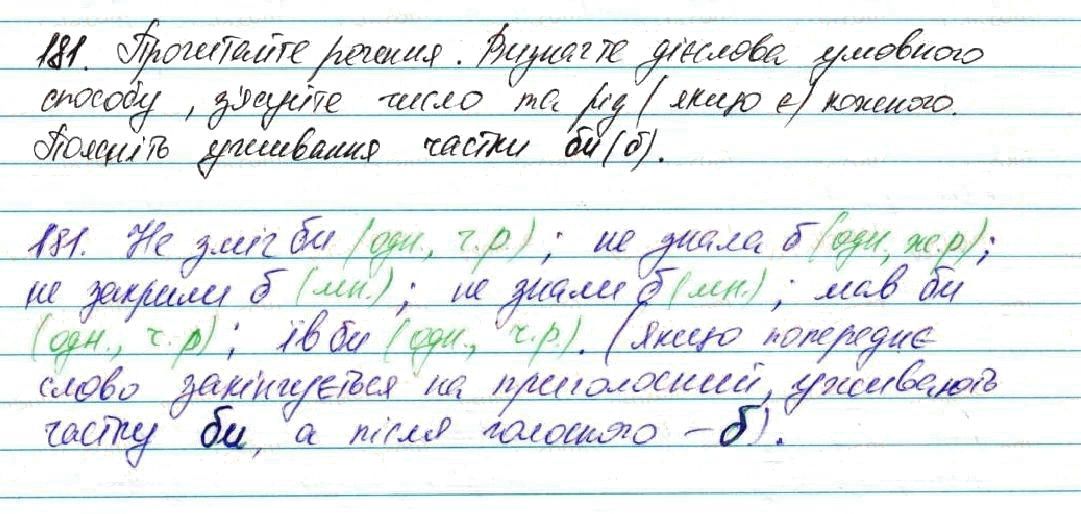 181. Прочитайте речення. Визначте дієслова умовного
способу, з'ясуйте число та рід (якщо є) кожного.
Поясніть уживання частки би(б).
181. Не зміг би (одн., ч.р.); не знала б (одн., ж.р);
не закрили б (мн.); не знали б (мн.); мав би
(одн., ч.р); їв би (одн., ч.р.). (якщо попереднє
слово закінчується на приголосний, уживають
частку би, а після голосного – б).